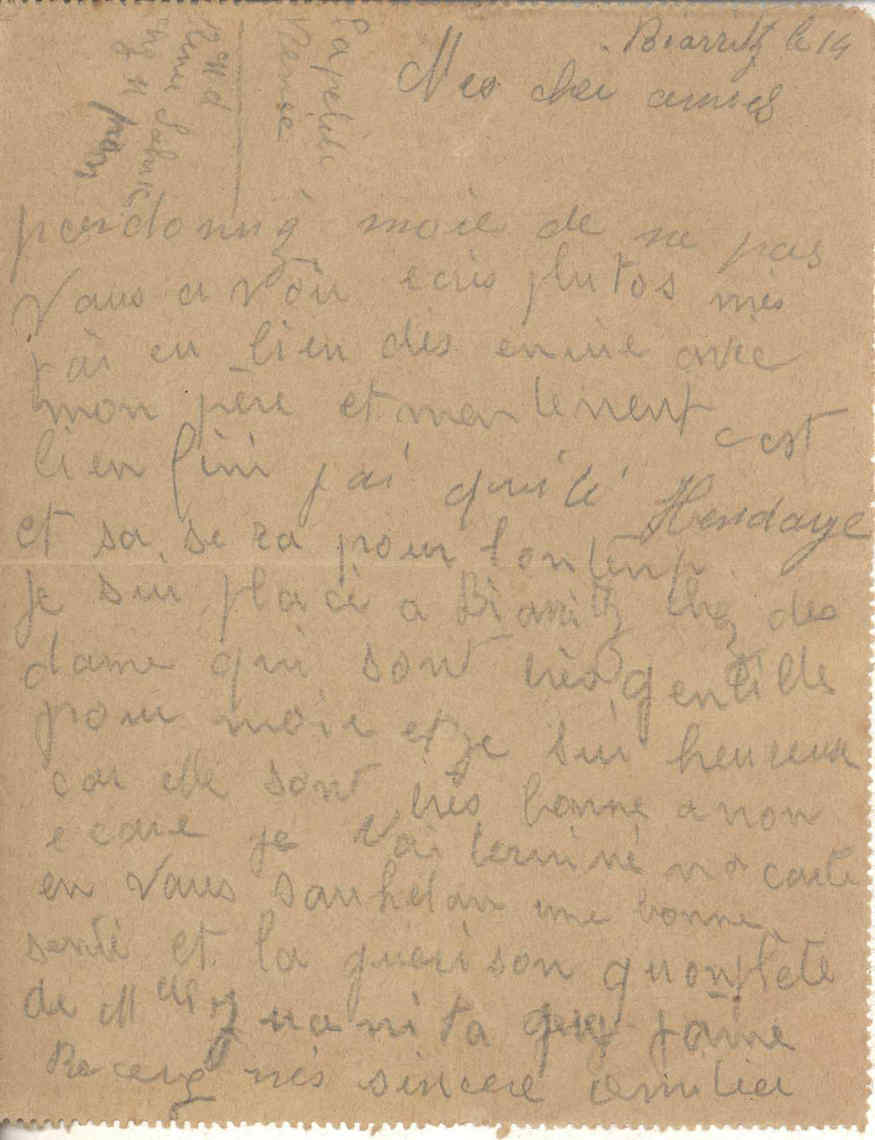 Biarritz le 14
Mes cher amies
perdonnig moie de ne pas
Vous a voir ecris plutos mes
j'ai eu bien des enuie avec
mon père et mentenent c'est
bien fini j'ai quité Hendaye
et sa se ra pour lontenp
Je suis placé a Biarritz chez des
dame qui sont très gentilles
pour moie et je sui heureuse
car elle sont très bonne a non
ecare je vai terminé ma carte
en Vous souhetan une bonne
senté et la guerison quonplète
de Melle Juanita que j'aime
Receug mes sincere amitier
La petite
Renée